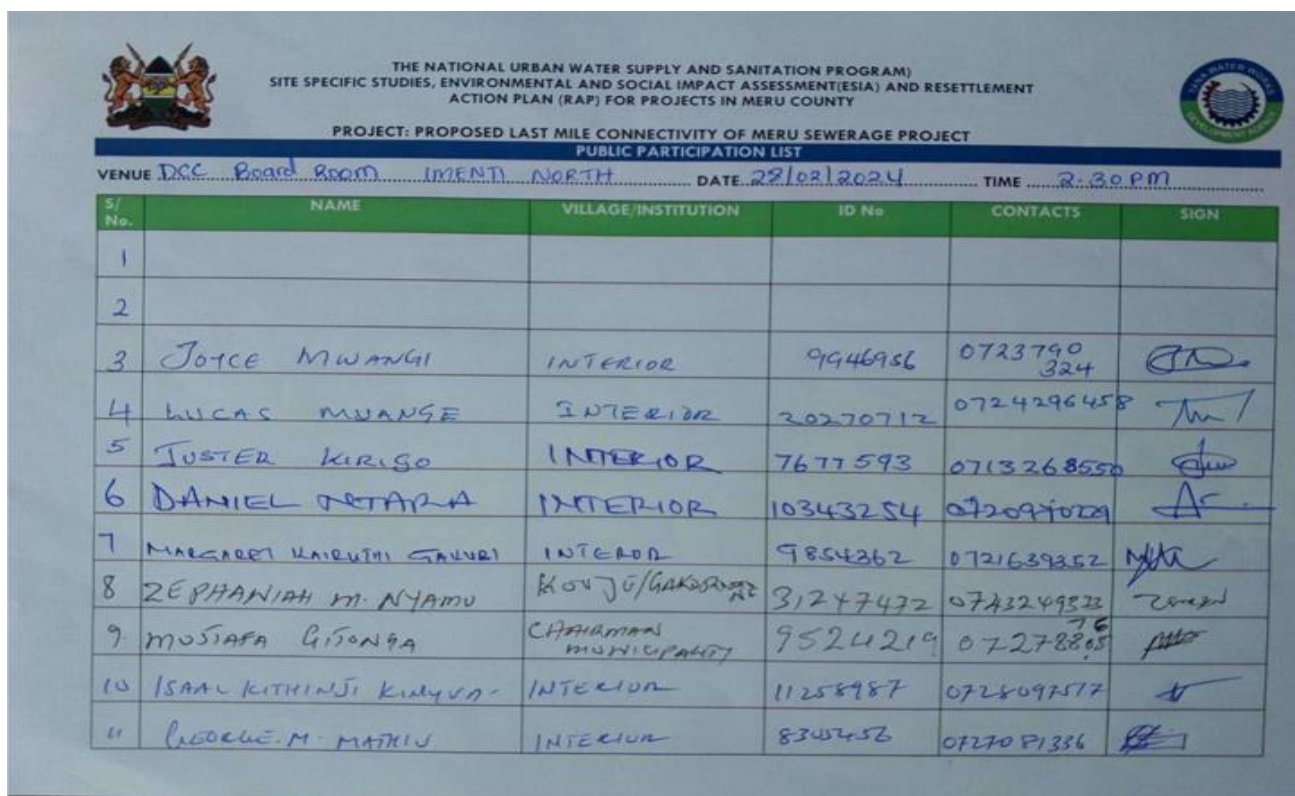 THE NATIONAL URBAN WATER SUPPLY AND SANITATION PROGRAM)
SITE SPECIFIC STUDIES, ENVIRONMENTAL AND SOCIAL IMPACT ASSESSMENT(ESIA) AND RESETTLEMENT
ACTION PLAN (RAP) FOR PROJECTS IN MERU COUNTY
PROJECT: PROPOSED LAST MILE CONNECTIVITY OF MERU SEWERAGE PROJECT
PUBLIC PARTICIPATION LIST
VENUE DCC Board Room IMENTI NORTH DATE 28/02/2024 TIME 2.30 PM
S/No. NAME VILLAGE/INSTITUTION ID No CONTACTS SIGN
1
2
3 JOYCE MWANGI INTERIOR 9946956 0723790324
4 LUCAS MUANGE INTERIOR 20270712 0724296458
5 JUSTER KIRIGO INTERIOR 7677593 0713268550
6 DANIEL INTERIOR 10343254
7 MARGARET KAIRUTHI GAKURI INTERIOR 9854362 0721639352
8 ZEPHANIAH M. NYAMU 31247472
9. MUSTAFA GITONGA CHAIRMAN MUNICIPALITY 9524219
10 KITHINJI INTERIOR 11258987
11 GEORGE. M. INTERIOR 0727081336
TANA WATER WORKS DEVELOPMENT AGENCY